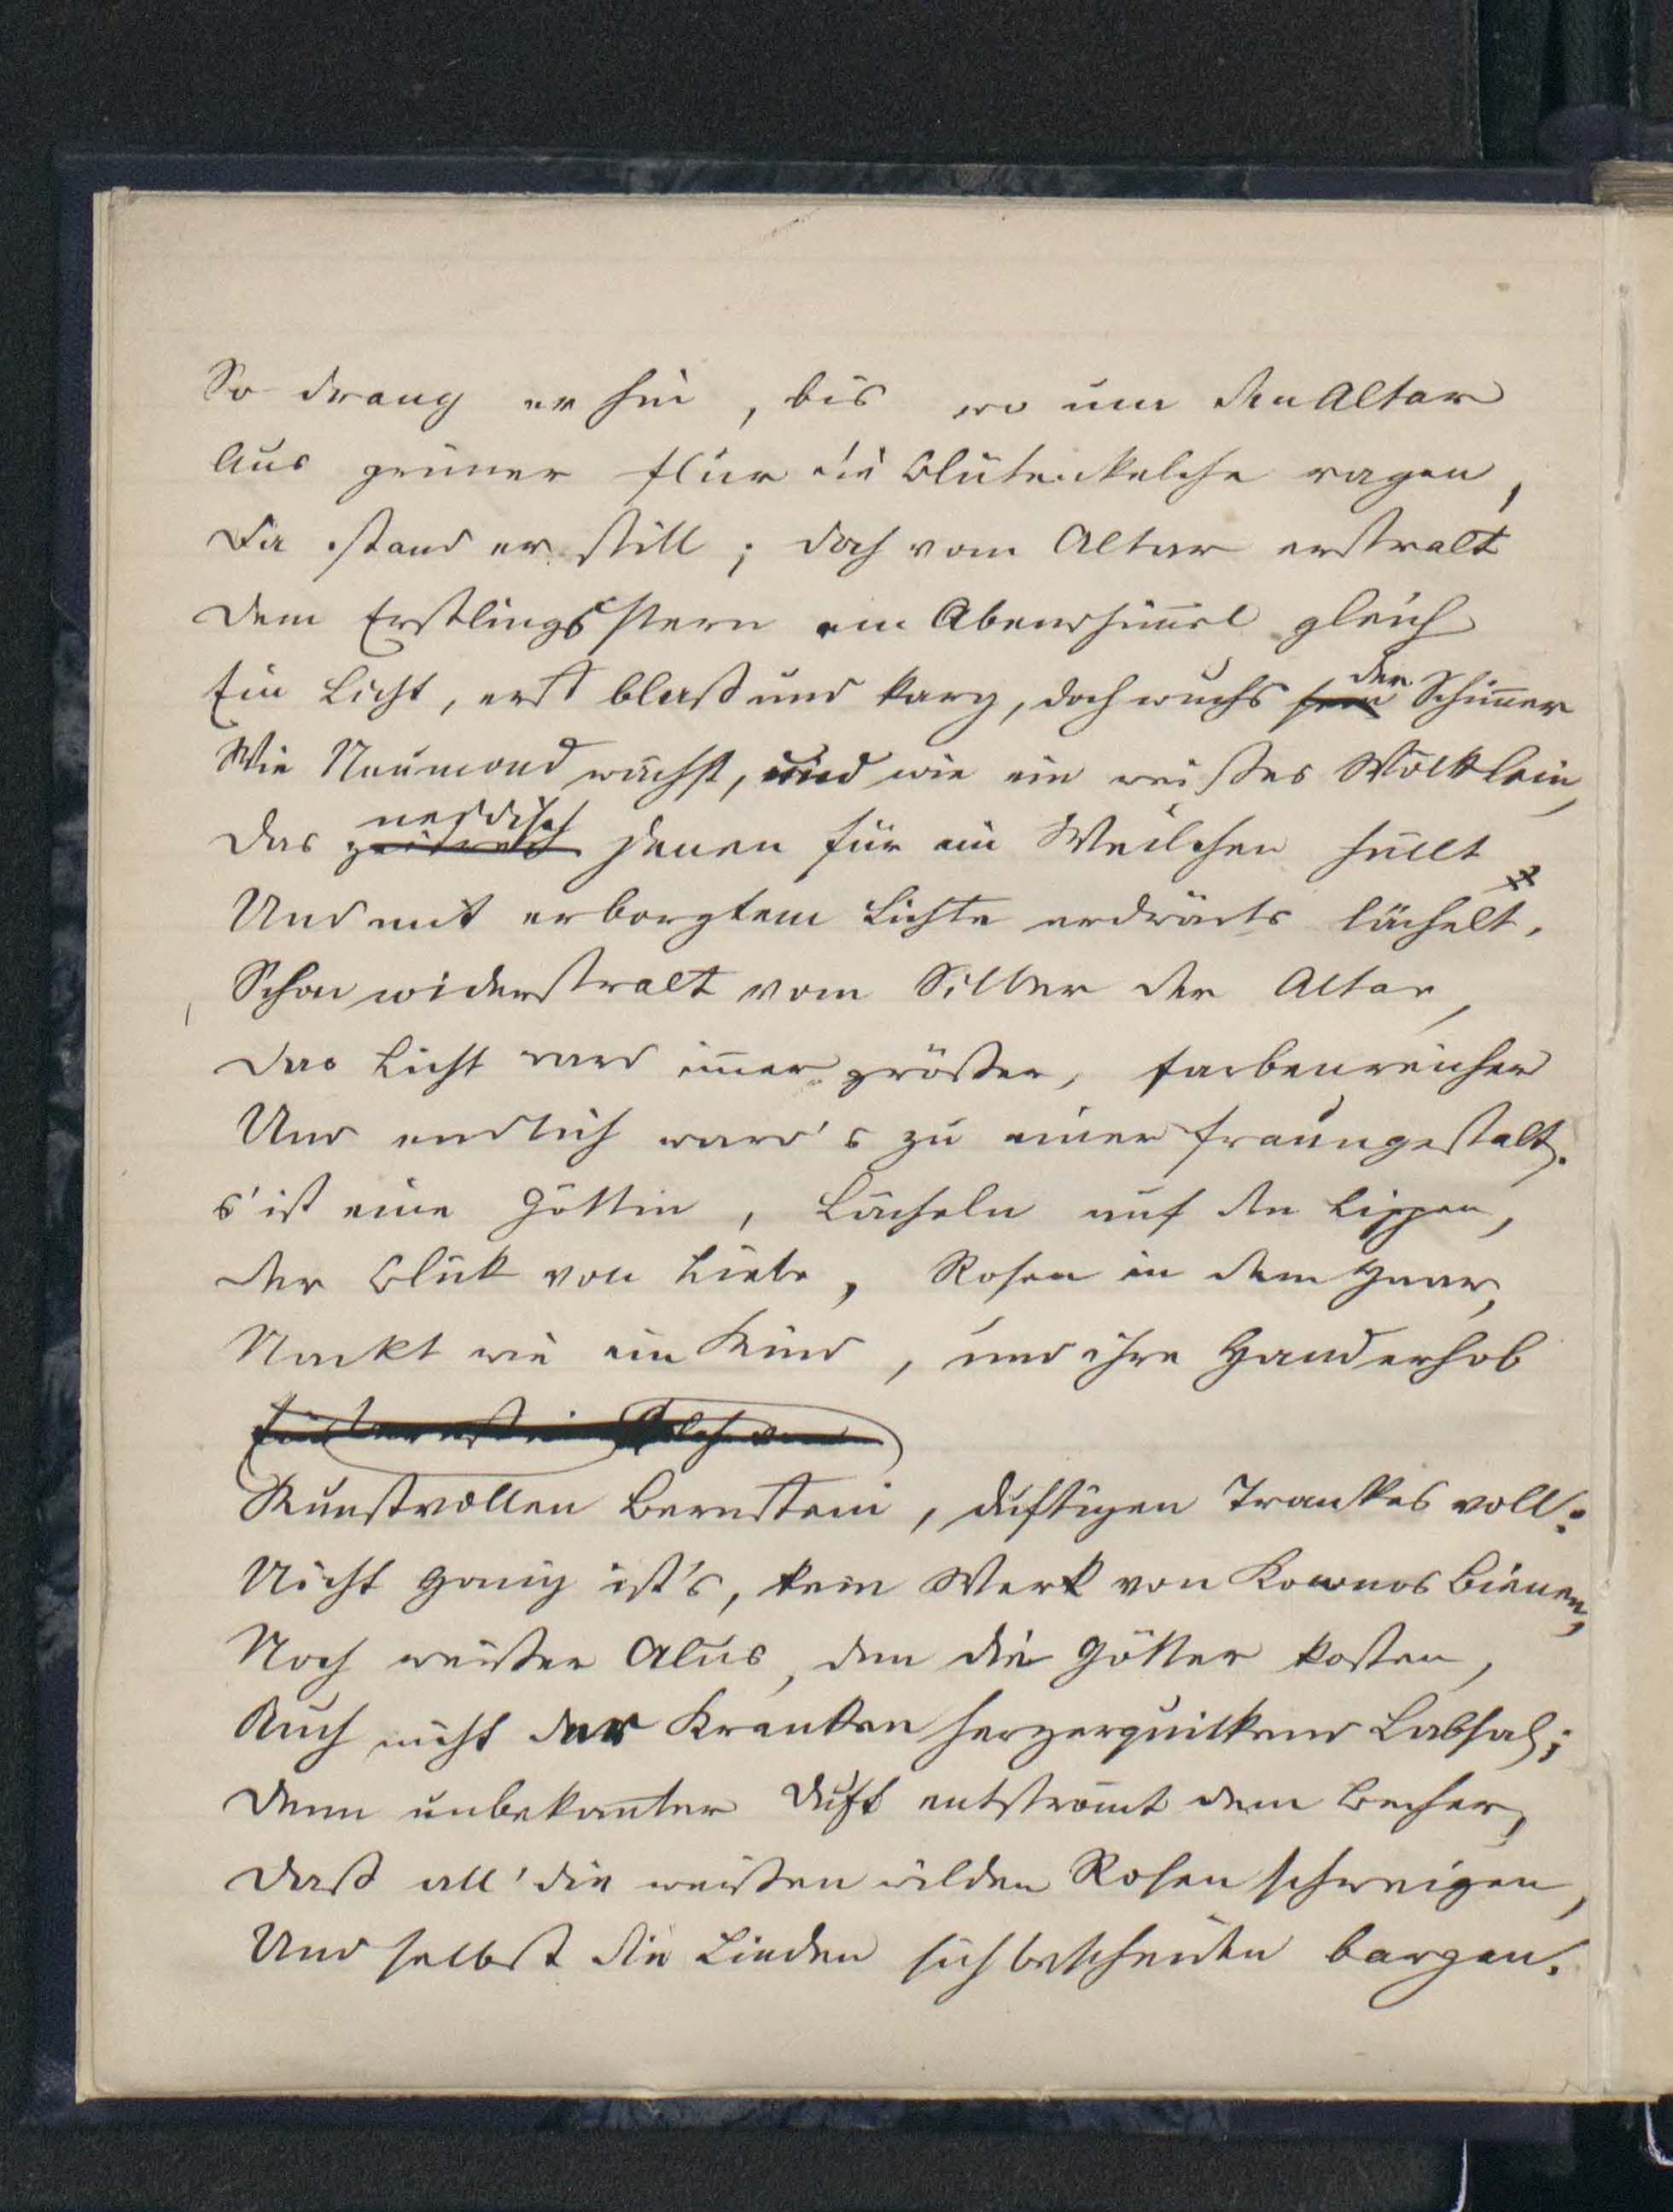 So drang er hin, bis wo um den Altar
Aus grüner Flur die Blütenkelche ragen,
Da stand er still; doch vom Altar erstralt
Dem Erstlingsstern am Abendhim̄el gleich
Ein Licht, erst blaß und karg, doch wuchs der Schim̄er
Wie Neumond wächst, und wie ein weißes Wölklein,
Das neidisch jenen für ein Weilchen hüllt
Und mit erborgtem Lichte erdwärts lächelt.
Schon widerstralt vom Silber der Altar,
Das Licht ward im̄er größer, farbenreicher
Und endlich ward's zu einer Fraungestalt.
s'ist eine Göttin, Lächeln auf den Lippen,
Der Blick von Liebe, Rosen in dem Haar,
Nackt wie ein Kind, und ihre Hand erhob
Kunstvollen Bernstein, duftigen Trankes voll:
Nicht Honig ist's, kein Werk von Kownos Bienen,
Noch weißer Alus, den die Götter kosten,
Auch nicht der Kranken herzerquickend Labsal;
Denn unbekan̄ter Duft entströmt dem Becher,
Daß all' die weißen wilden Rosen schweigen,
Und selbst die Linden sich bescheiden bargen.